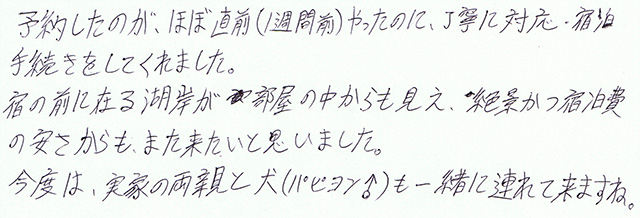 予約したのが、ほぼ直前(1週間前)やったのに、丁寧に対応・宿泊
手続きをしてくれました。
宿の前に在る湖岸が部屋の中からも見え、絶景かつ宿泊費
の安さからも、また来たいと思いました。
今度は、実家の両親と犬(パピヨン♂)も一緒に連れて来ますね。